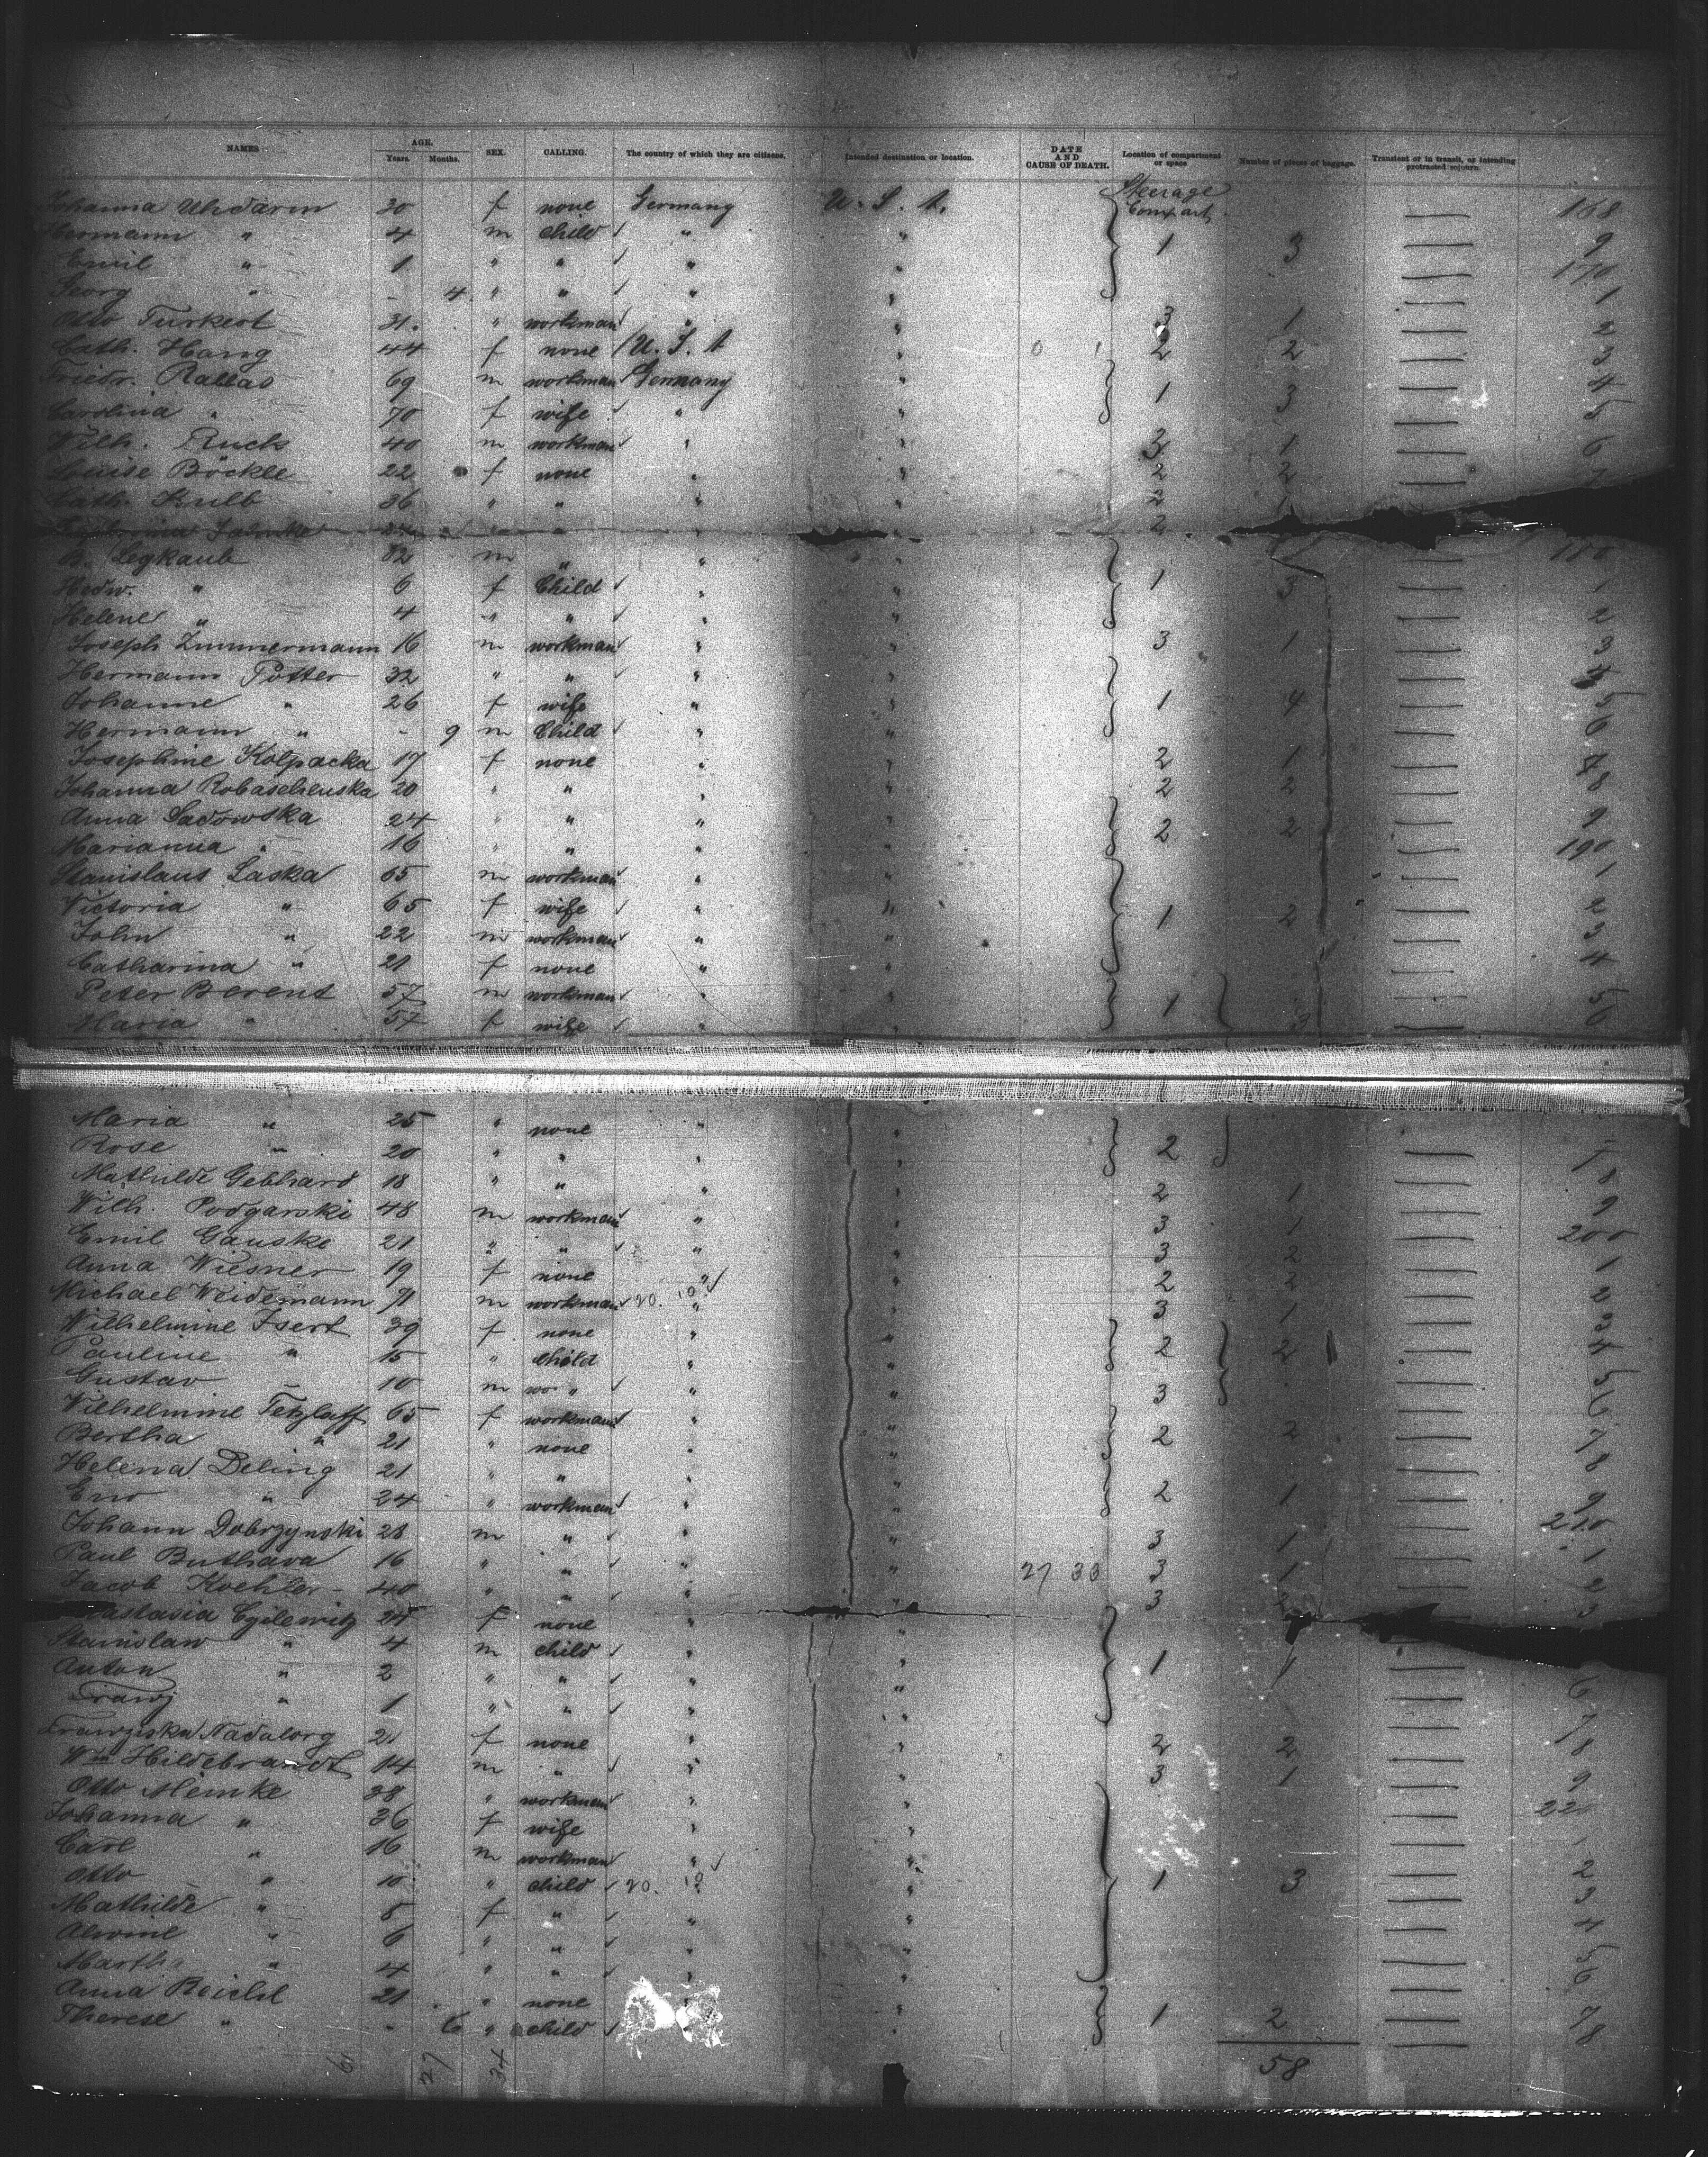 NAMES AGE. Years. Months. SEX. CALLING. The country of which they are citizens. Intended destination or location. DATE AND CAUSE OF DEATH. Location of compartment or space Number of pieces of baggage. Transient or in transit, or intending protracted sojourn.
Johanna Uhdarin 30 f none Germany U. S. A. Steerage Compart. 168
Hermann " 4 m child " " 1 3 9
Emil " 1 " " " " 170
Georg " - 4 " " " " 1
Otto Turkest 31. " workman " " 3 1 2
Cath. Hang 44 f none U. S. A " 2 2 3
Friedr. Rallas 69 m workman Germany " 1 3 4
Carolina " 70 f wife " " 5
Wilh. Ruck 40 m workman " " 3 1 6
Louise Böckle 22 f none " " 2 2 7
Cath. Kulb 36 " " " " 2 1
24 " 2
Legkaub 32 m " " " 180
Hedw. " 6 f Child " " 1 3 1
Helene " 4 " " " " 2
Joseph Zimmermann 16 m workman " " 3 1 3
Hermann Potter 32 " " " " 4
Johanne " 26 f wife " " 1 4 5
Hermann " - 9 m Child " " 6
Josephine Kolpacka 17 f none " " 2 1 7
Johanna Robaschenska 20 " " " " 2 2 8
Anna Sadowska 24 " " " " 2 2 9
Marianna " 16 " " " " 190
Stanislaus Laska 65 m workman " " 1
Victoria " 65 f wife " " 1 2 2
John " 22 m workman " " 3
Catharina " 21 f none " " 4
Peter Berent 57 m workman " " 1 3 5
Maria " 57 f wife " " 6
Maria " 25 " none " "
Rose " 20 " " " 2 7
Mathilde Gebhard 18 " " " " 2 1 8
Wilh. Podgarski 48 m workman " " 3 1 9
Emil Gauske 21 " " " " 3 2 200
Anna Wiesner 19 f none " " 2 2 1
Michael Weidemann 71 m workman " " 3 1 2
Wilhelmine Isert 39 f none " " 2 2 3
Pauline " 15 " child " " 4
Gustav " 10 m " " " 3 5
Wilhelmine Tetzlaff 65 f workman " " 6
Bertha " 21 " none " " 2 2 7
Helena Deling 21 " " " " 8
" 24 " workman " " 2 1 9
Johann Dobrzynski 28 m " " " 3 1 210
Paul Buthava 16 " " " " 27 33 3 1 1
Jacob Koehler 40 " " " " 3 2
24 f none " " 3
Stanislaw " 4 m child " " 1 1
Anton " 2 " " " "
Franz " 1 " " " " 6
Franziska Nadalorg 21 f none " " 2 2 7
Wm Hildebrandt 14 m " " " 3 1 8
Otto Meinke 38 " workman " " 9
Johanna " 36 f wife " " 220
Carl " 16 m workman " "
Otto " 10 " child " " 1 3 2
Mathilde " 8 f " " " 3
Alwine " 6 " " " " 4
Martha " 4 " " " " 5
Anna Reichl 21 " none " 6
Therese " - 6 " child " 1 2 7
8
61 27 34 58